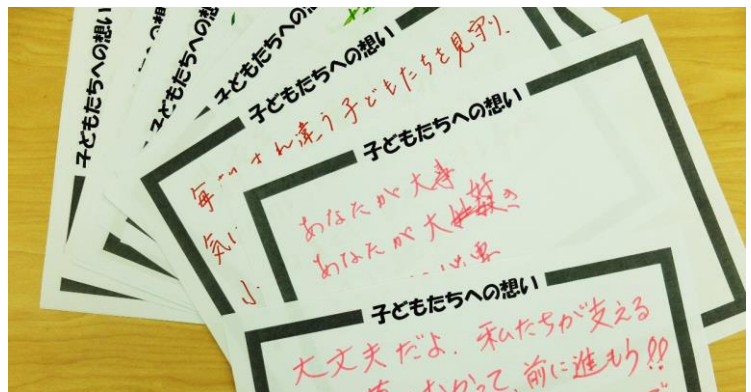 子どもたちへの想い
子どもたちへの想い
子どもたちへの想い
子どもたちへの想い
子どもたちへの想い
毎 違う子どもたちを見守り、
気
子どもたちへの想い
あなたが大事
あなたが大好き
子どもたちへの想い
大丈夫だよ、私たちが支える
むかって、前に進もう!!